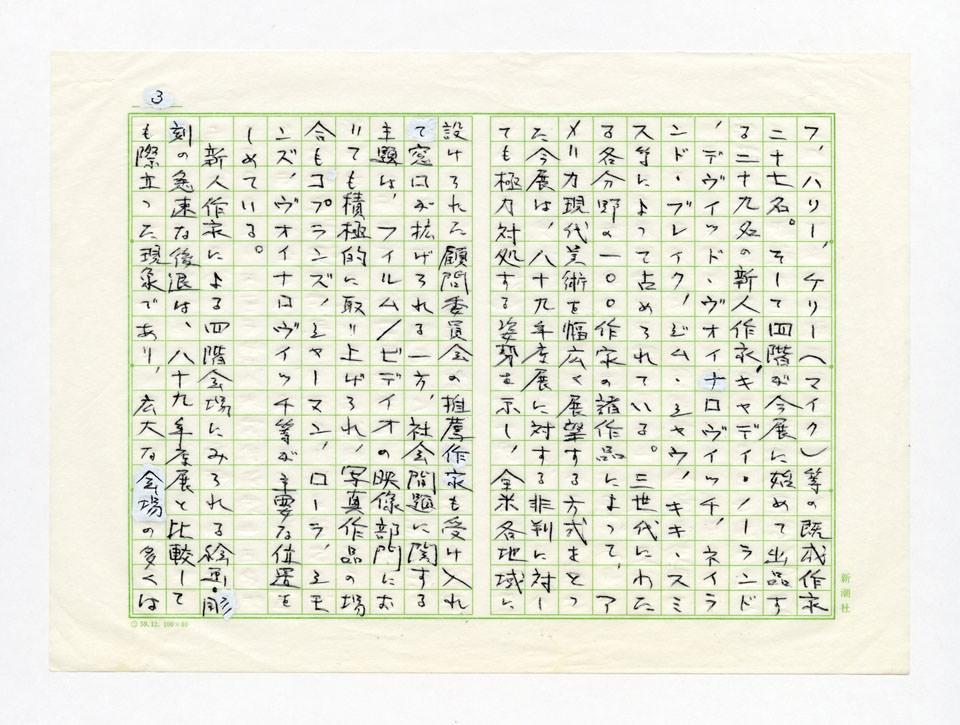 3
フ、ハリー、ケリー(マイク)等の既成作家
二十七名。そして四階が今展に始めて出品す
る二十九名の新人作家、キャディ・ノーランド
、デヴィッド・ヴォイナロヴィッチ、ネイラ
ンド・ブレイク、ジム・ショウ、キキ・スミ
ス等によって占められている。三世代にわた
る各分野の一〇〇作家の諸作品によって、ア
メリカ現代美術を幅広く展望する方式をとっ
た今展は、八十九年度展に対する非判に対し
ても極力対処する姿勢を示し、全米各地域に
設けられた顧問委員会の推薦作家も受け入れ
て窓口が拡げられる一方、社会問題に関する
主題は、フィルム/ビデイオの映像部門にお
いても積極的に取り上げられ、写真作品の場
合もコプランズ、シャーマン、ローラ、シモ
ンズ、ヴオイナロヴィッチ等が主要な位置を
しめている。
新人作家による四階会場にみられる絵画・彫
刻の急速な後退は、八十九年度展と比較して
も際立った現象であり、広大な会場の多くは
新潮社
59.12. 100×60